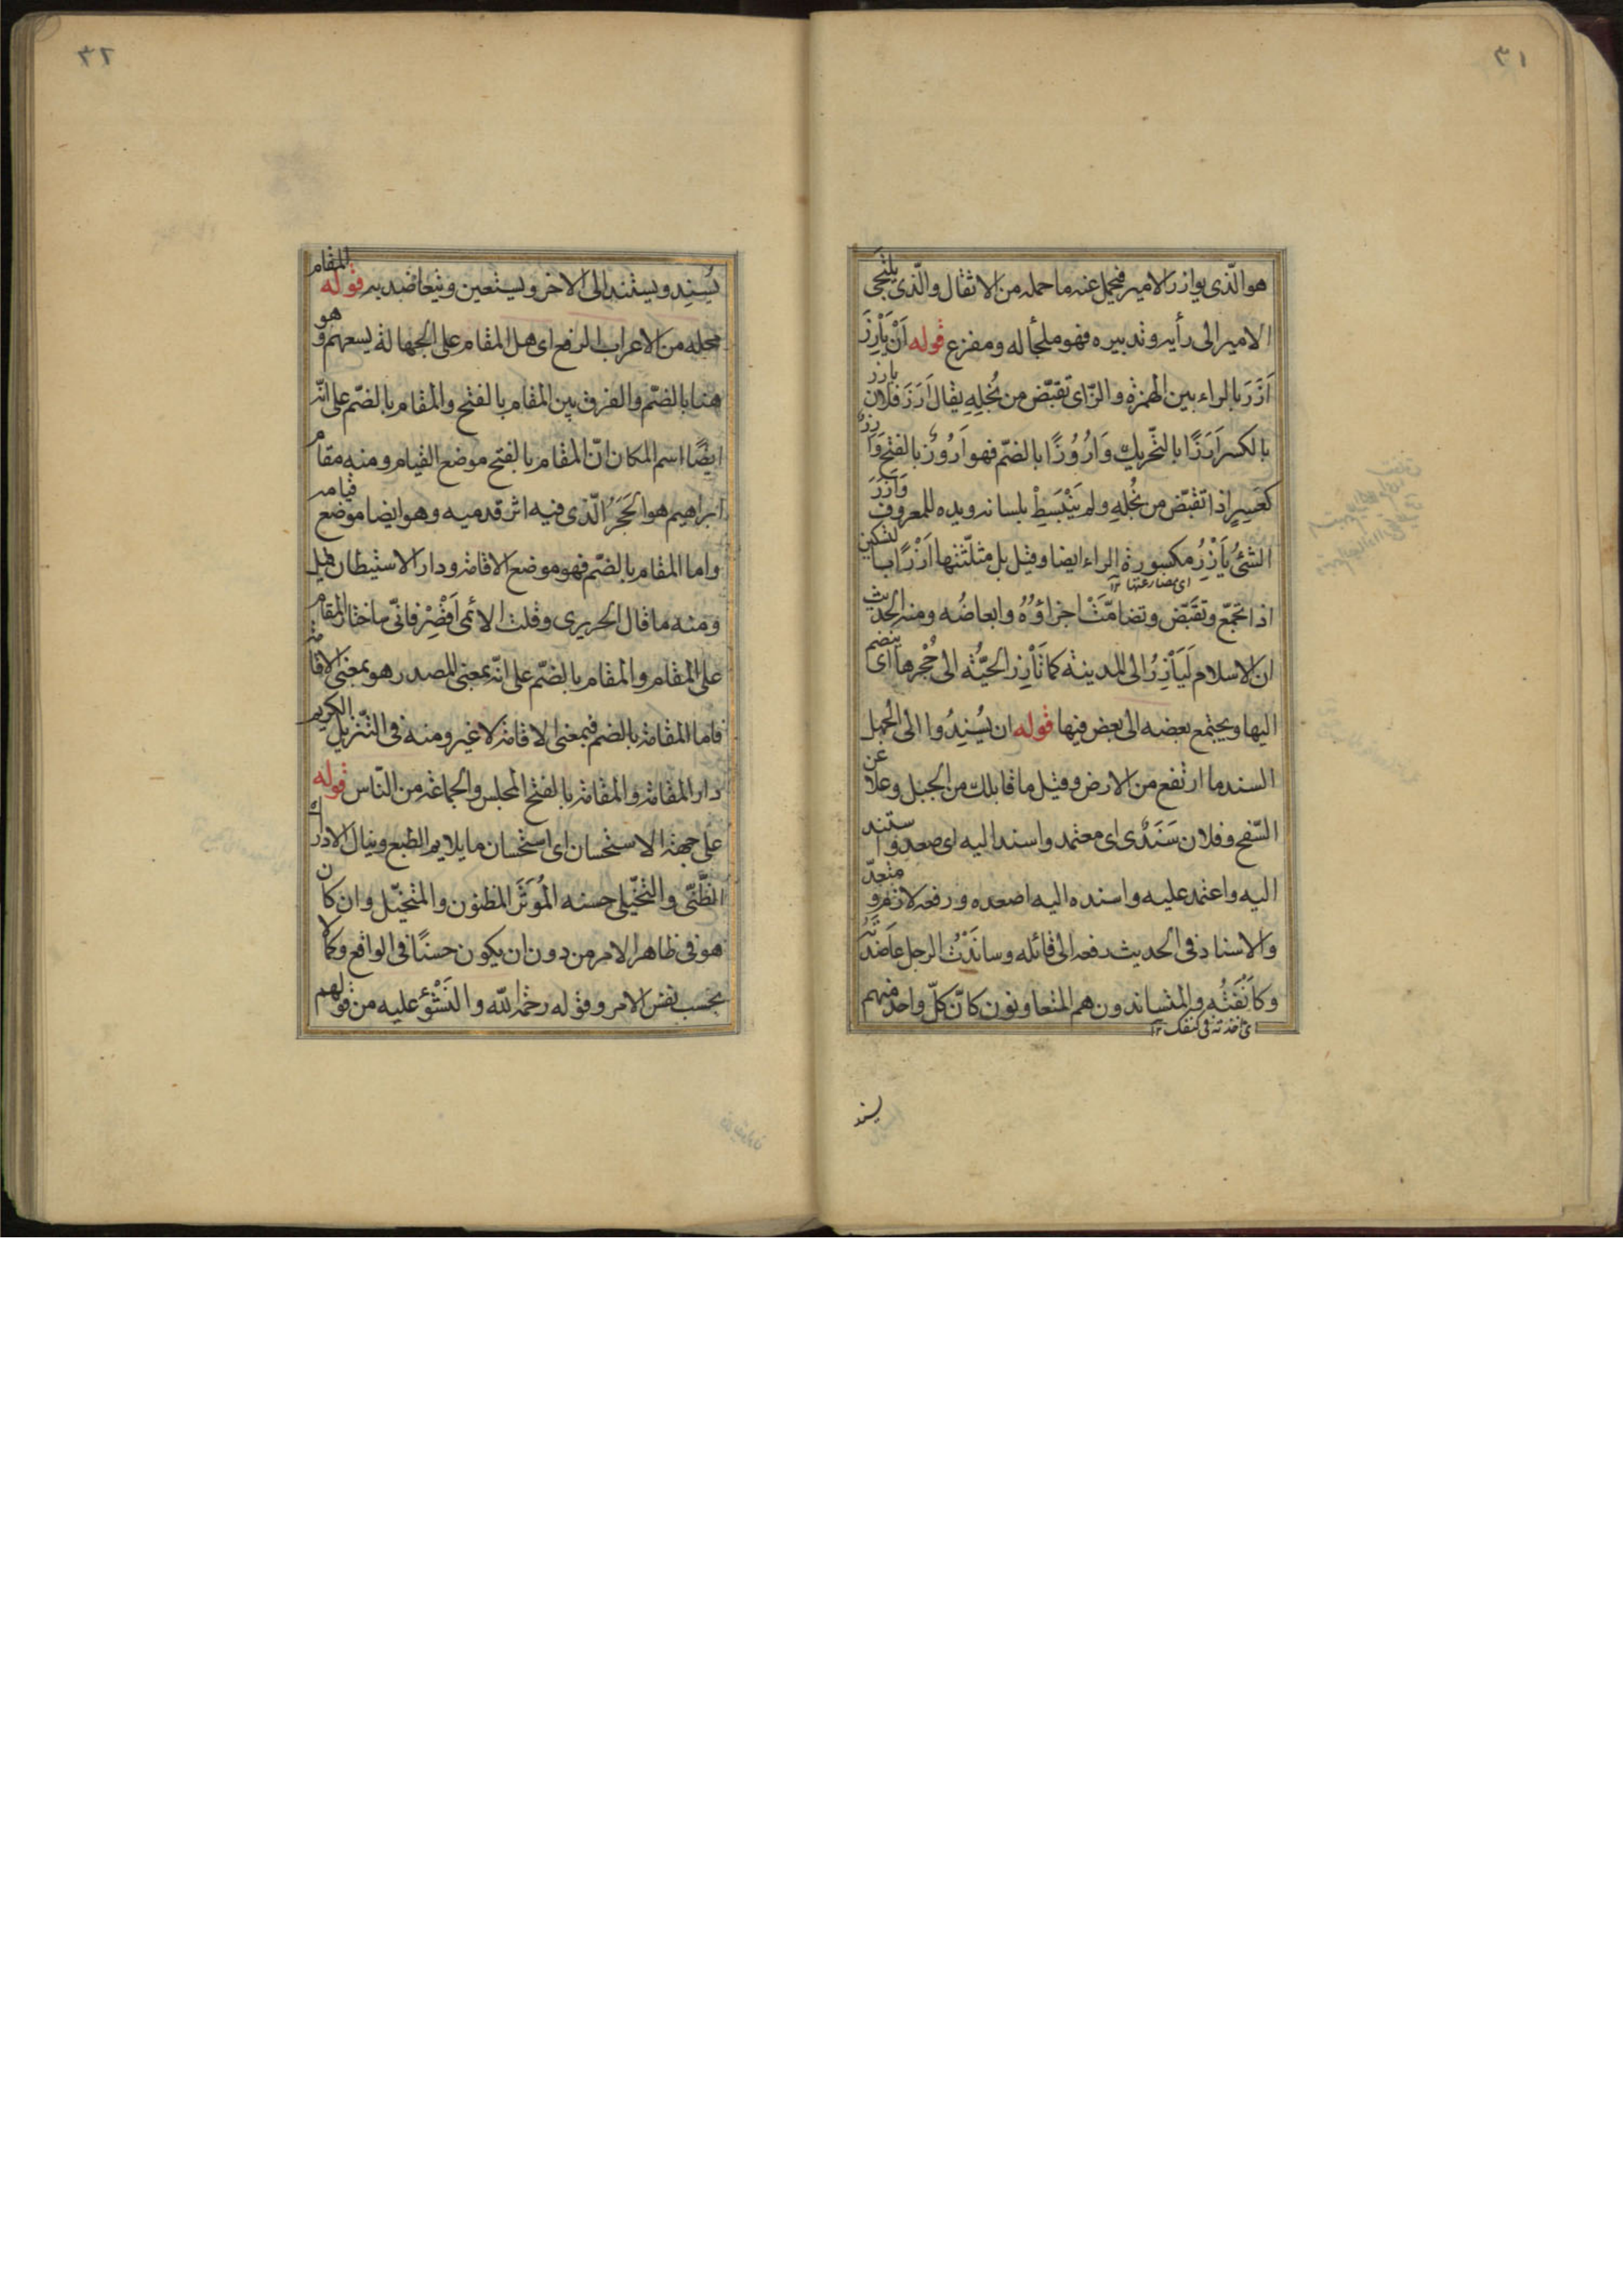 ٣١
هو الّذى يوازر الامير فيحمل عنه ما حمله من الاثقال والّذى يلتجى
الامير الى رأيه وتدبيره فهو ملجأ له ومفزع قوله اَنْ يَأْرِزَ
اَرَزَ بالراء بين الهمزة والزّاى تقبّض من بُخلِهِ يقال اَرَزَ فلان يارز
بالكسر اَرَزًا بالتّحريك وَاُرُوُزًا بالضمّ فهو اَرُوُز بالفتح وَاَرِزٌ
كعَسِرٍ اذا تقبّض من بُخلِهِ ولم يَنْبَسِطْ بلسانه ويده للمعروف وَاَرَزَ
الشئُ يَاْرِزِ مكسورة الراء ايضا وقيل بل مثلّثتها اَرْزًا بالتسكين
اى مضارعتها ١٢
اذا تجمّع وتقَبّض وتضامَّتْ اجزاؤُهُ وابعاضُه ومنه الحديث
ان الاسلام لَيَأرِزُ الى المدينة كما تَأْرِز الحيَّةُ الى جُحْرها اى ينضم
اليها ويجتمع بعضه الى بعض فيها قوله ان يُسْنِدُوا الى الجبل
السند ما ارتفع من الارض وقيل ما قابلك من الجبل وعلا عن
السّفح وفلان سَنَدٌى اى معتمد واسند اليه اى صعد واستند
اليه واعتمد عليه واسنده اليه اصعده ورفعه لازم و متعدّ
والاسناد فى الحديث رفعه الى قائله وساندْتُ الرجل عاضدتُه
وكانَفْتُه والمتساندون هم المتعاونون كانّ كلّ واحد منهم
اى اخذته فى كنفك ١٢
يسند
٣٢
يُسْنِد ويستند الى الاخر ويستعين ويتعاضد به قوله المقام
محله من الاعراب الرفع اى هل المقام على الجهالة يسعهم وهو
هنا بالضمّ والفرق بين المقام بالفتح والمقام بالضمّ على انّه
ايضًا اسم المكان انّ المقام بالفتح موضع القيام ومنه مقام
ابراهيم هو الحَجَرُ الّذى فيه اثر قدميه وهو ايضا موضع قيامه
واما المقام بالضّم فهو موضع الاقامة ودار الاستيطان قيل
ومنه ما قال الحريرى وقلت للائمى اَقْصِرْ فانّى ساختار المقام
على المقام والمقام بالضّم على انّه بمعنى المصدر هو بمعنى الاقامة
فاما المقامة بالضم فبمعنى الاقامة لا غير ومنه فى التّنزيل الكريم
دار المقامة والمقامة بالفتح المجلس والجماعة من النّاس قوله
على جهة الاستحسان اى استحسان ما يلايم الطبع وينال الادراك
الظَّنّى والتخيّلى حسنه المُوَثَّر المظنون والمتخيّل وان كان
هو فى ظاهر الامر من دون ان يكون حسنًا فى الواقع وكمالا
بحسب نفس الامر وقوله رحمه اللّه والنَشْوُ عليه من قولهم